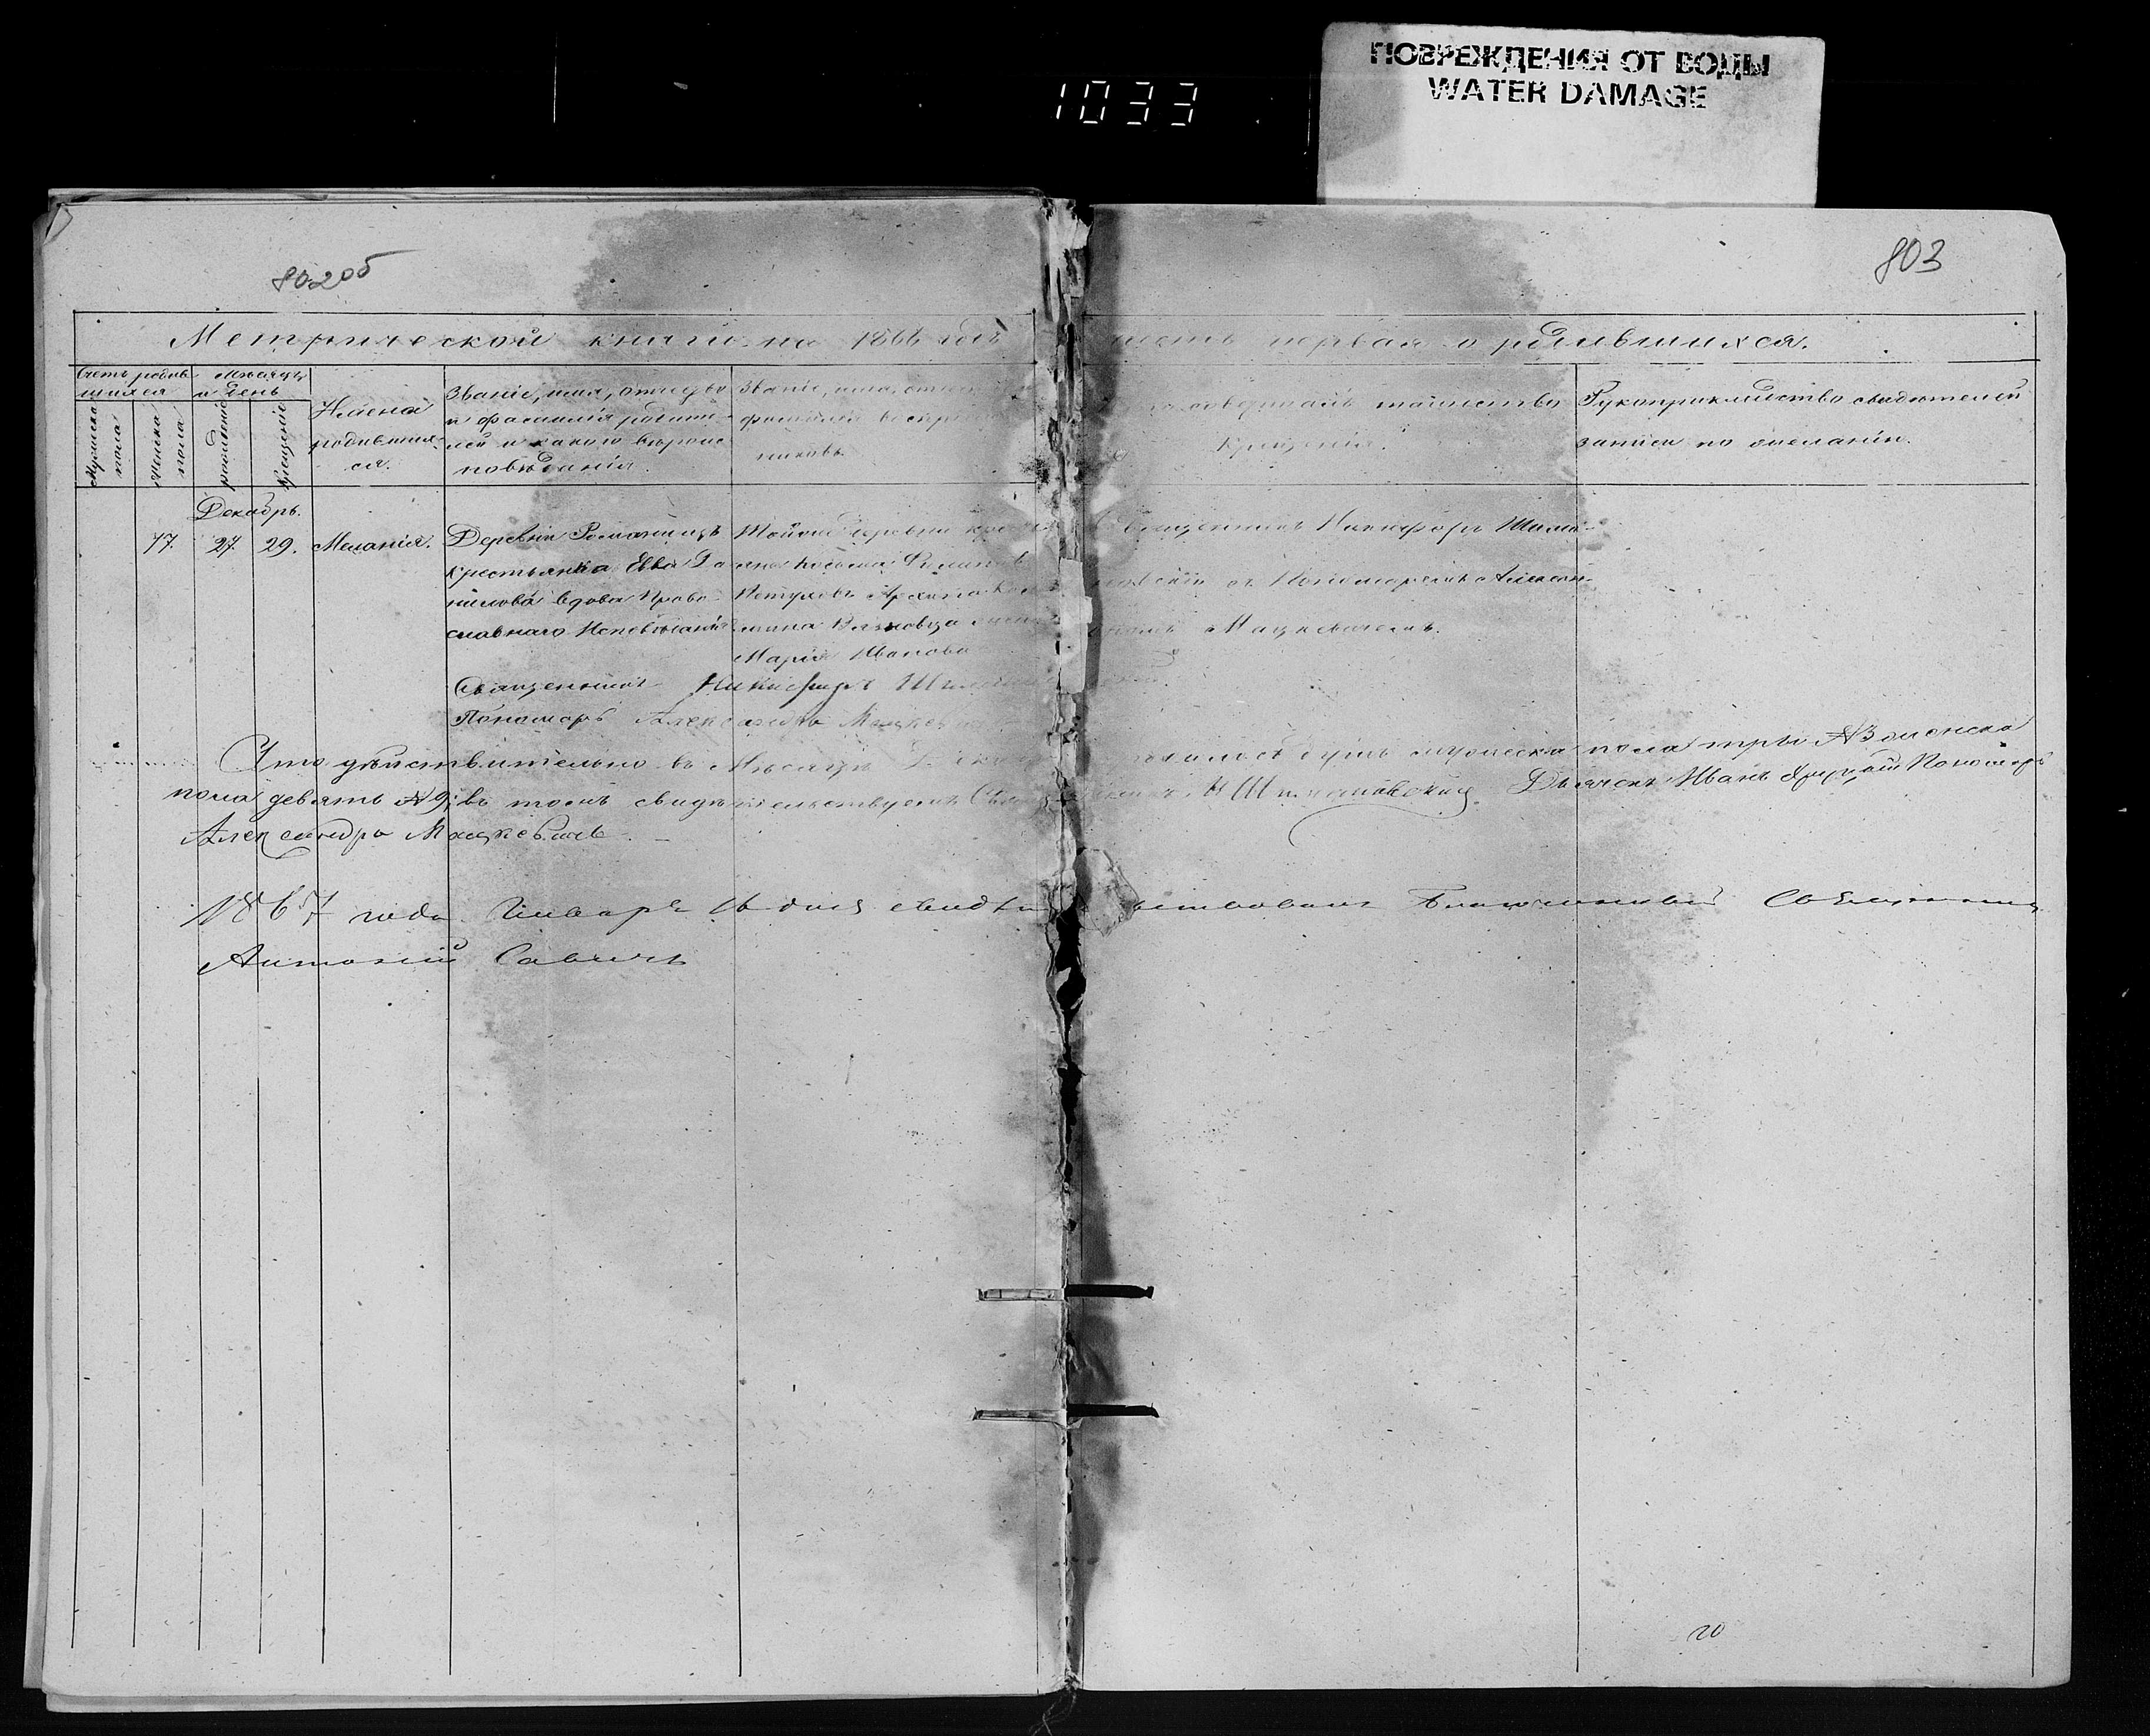 ПОВРЕЖДЕНИЯ ОТ ВОДЫ
WATER DAMAGE
1033
802об
803
Метрической книги на 1866 годъ часть первая о родившихся.
Счетъ родив-
шихся
Мужеска пола
Женска пола
Мѣсяцъ
и день
рожденіе
крещеніе
Имена
родивших-
ся.
Званіе, имя, отчество
и фамилія родите-
лей и какого вѣроис-
повѣданія.
Званіе, имя, отчест
фамилія воспр
никовъ
совершалъ таинство
крещенія.
Рукоприкладство свидѣтелей
записи по желанію.
Декабрь.
77. 27. 29. Меланія.
Деревни
крестьянка Евва Да
нилова вдова Право-
славнаго Исповѣданія
Тойже деревни
Косьма
Марія Иванова
Священникъ Никифоръ Шима-
новскій съ Пономаремъ Алексан-
Мацкевичемъ.
Священникъ Никифоръ
Пономарь Александръ Мацкевич
Что дѣйствительно въ Мѣсяцѣ Дека родилось душъ мужеска пола три №3 женска
пола девять №9; въ томъ свидѣтельствуемъ Дьячекъ Иванъ Пономарь
Александръ Мацкевичъ
1867 года Января 16 дня свидѣтельствовалъ Благочинный Священникъ
Антоній Савичъ
20